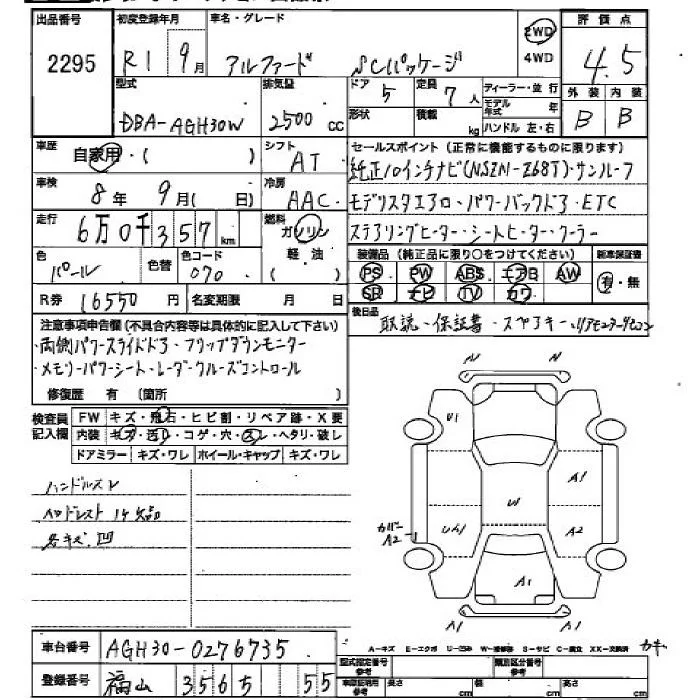 出品番号 初度登録年月 車名・グレード 2WD 評価点
2295 R1 9月 アルファード SCパッケージ 4WD 4.5
型式 排気量 ドア 定員 ディーラー・並行 外装 内装
DBA-AGH30W 2500cc 5 7人 モデル年式 年 B B
形状 積載 kg ハンドル 左・右
車歴 自家用・( ) シフト AT セールスポイント(正常に機能するものに限ります)
純正10インチナビ(NSZN-Z68T)・サンルーフ
車検 8年 9月( 日) 冷房 AAC モデリスタエアロ・パワーバックドア・ETC
走行 6万0千357km 燃料 ガソリン ステアリングヒーター・シートヒーター・クーラー
軽・油
色 パール 色替 色コード 070 ( ) 装備品(純正品に限り○をつけてください) 新車保証書
PS PW ABS エアB AW 有・無
SR ナビ TV カワ
R券 16550円 名変期限 月 日
後日品 取説・保証書・スペアキー・リアモニターリモコン
注意事項申告欄(不具合内容等は具体的に記入して下さい)
・両側パワースライドドア・フリップダウンモニター
・メモリーパワーシート・レーダークルーズコントロール
修復歴 有 (箇所 )
検査員記入欄 FW キズ・飛石・ヒビ割・リペア跡・X要
内装 キズ・汚レ・コゲ・穴・スレ・ヘタリ・破レ
ドアミラー キズ・ワレ ホイール・キャップ キズ・ワレ
ハンドルスレ
ヘッドレスト1ケ欠品
各キズ.凹
N N
U1
A1
U1
カバー A2-1 UA1 A2
A1
A1 A1
車台番号 AGH30-0276735
A-キズ E-エクボ U-凹み W-補修跡 S-サビ C-腐食 XX-交換済
登録番号 福山 3565 55
型式指定番号 参考 類別区分番号 参考
車庫証明用 参考 長さ cm 幅 cm 高さ cm